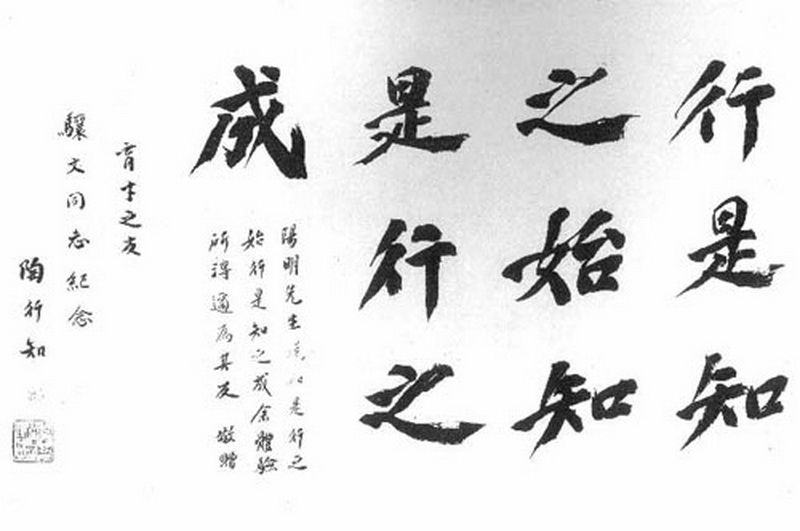 行是知
之始知
是行之
成
陽明先生是行之
始行是知之成余體驗
所得適為其反 敬贈
育才之友
驤文同志紀念
陶行知